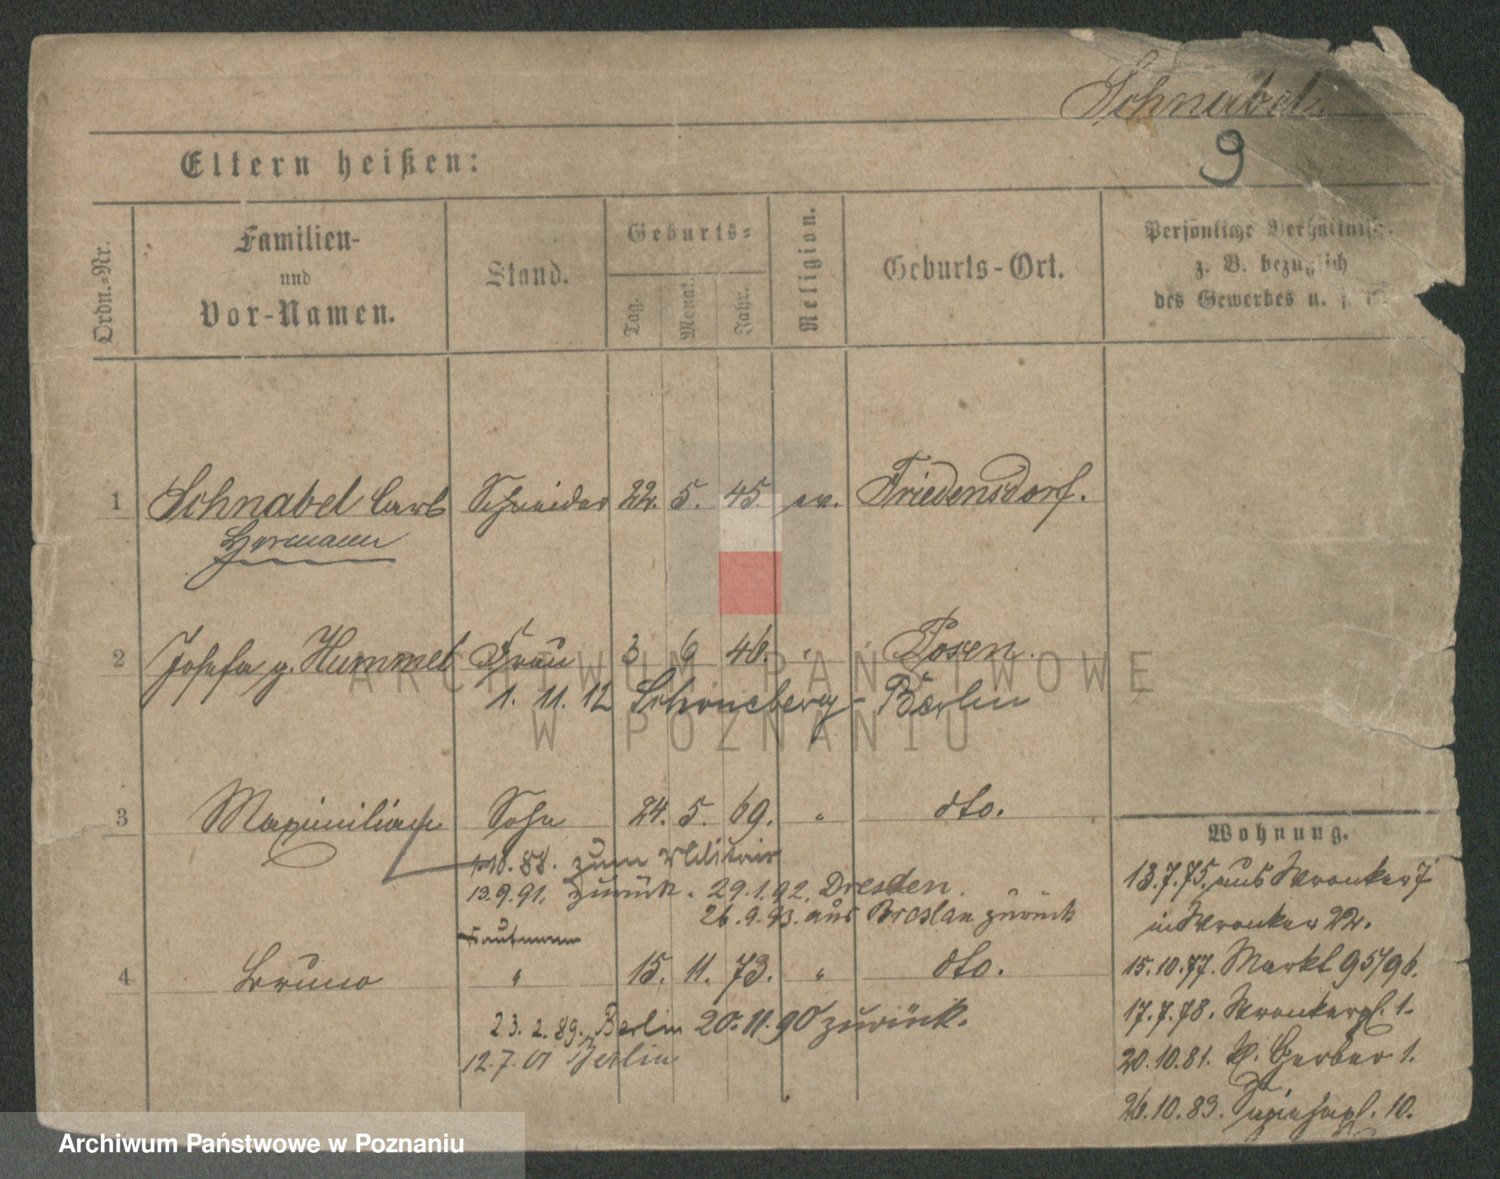 Schnabel.
9
Eltern heißen:
Ordn.-Nr.
Familien-
und
Vor-Namen.
Stand.
Geburts-
Tag.
Monat.
Jahr.
Religion.
Geburts-Ort.
Persönliche Verhältnisse
z. B. bezüglich
des Gewerbes u. s. w.
1 Schnabel Carl Schneider 22. 5. 45. ev. Friedensdorf.
Hermann
2 Josefa g. Hummel Frau 3 6 46. " Posen.
1. 11. 12 Schöneberg-Berlin
3 Maximilian Sohn 24. 5. 69. " dto.
1.10.88. zum Militair
13.9.91. zurück. 29.1.92. Dresden.
26.9.93. aus Breslau zurück
Kaufmann
4 Bruno " 15. 11. 73. " dto.
23.2.89. Berlin 20.11.90 zurück.
12.7.01 Berlin
Wohnung.
13.7.75, aus Wronker 7
in Wronker 22.
15.10.77. Markt 95/96.
17.7.78. Wronkerpl. 1.
20.10.81. Kl. Gerber 1.
26.10.83. 10.
ARCHIWUM PAŃSTWOWE
W POZNANIU
Archiwum Państwowe w Poznaniu